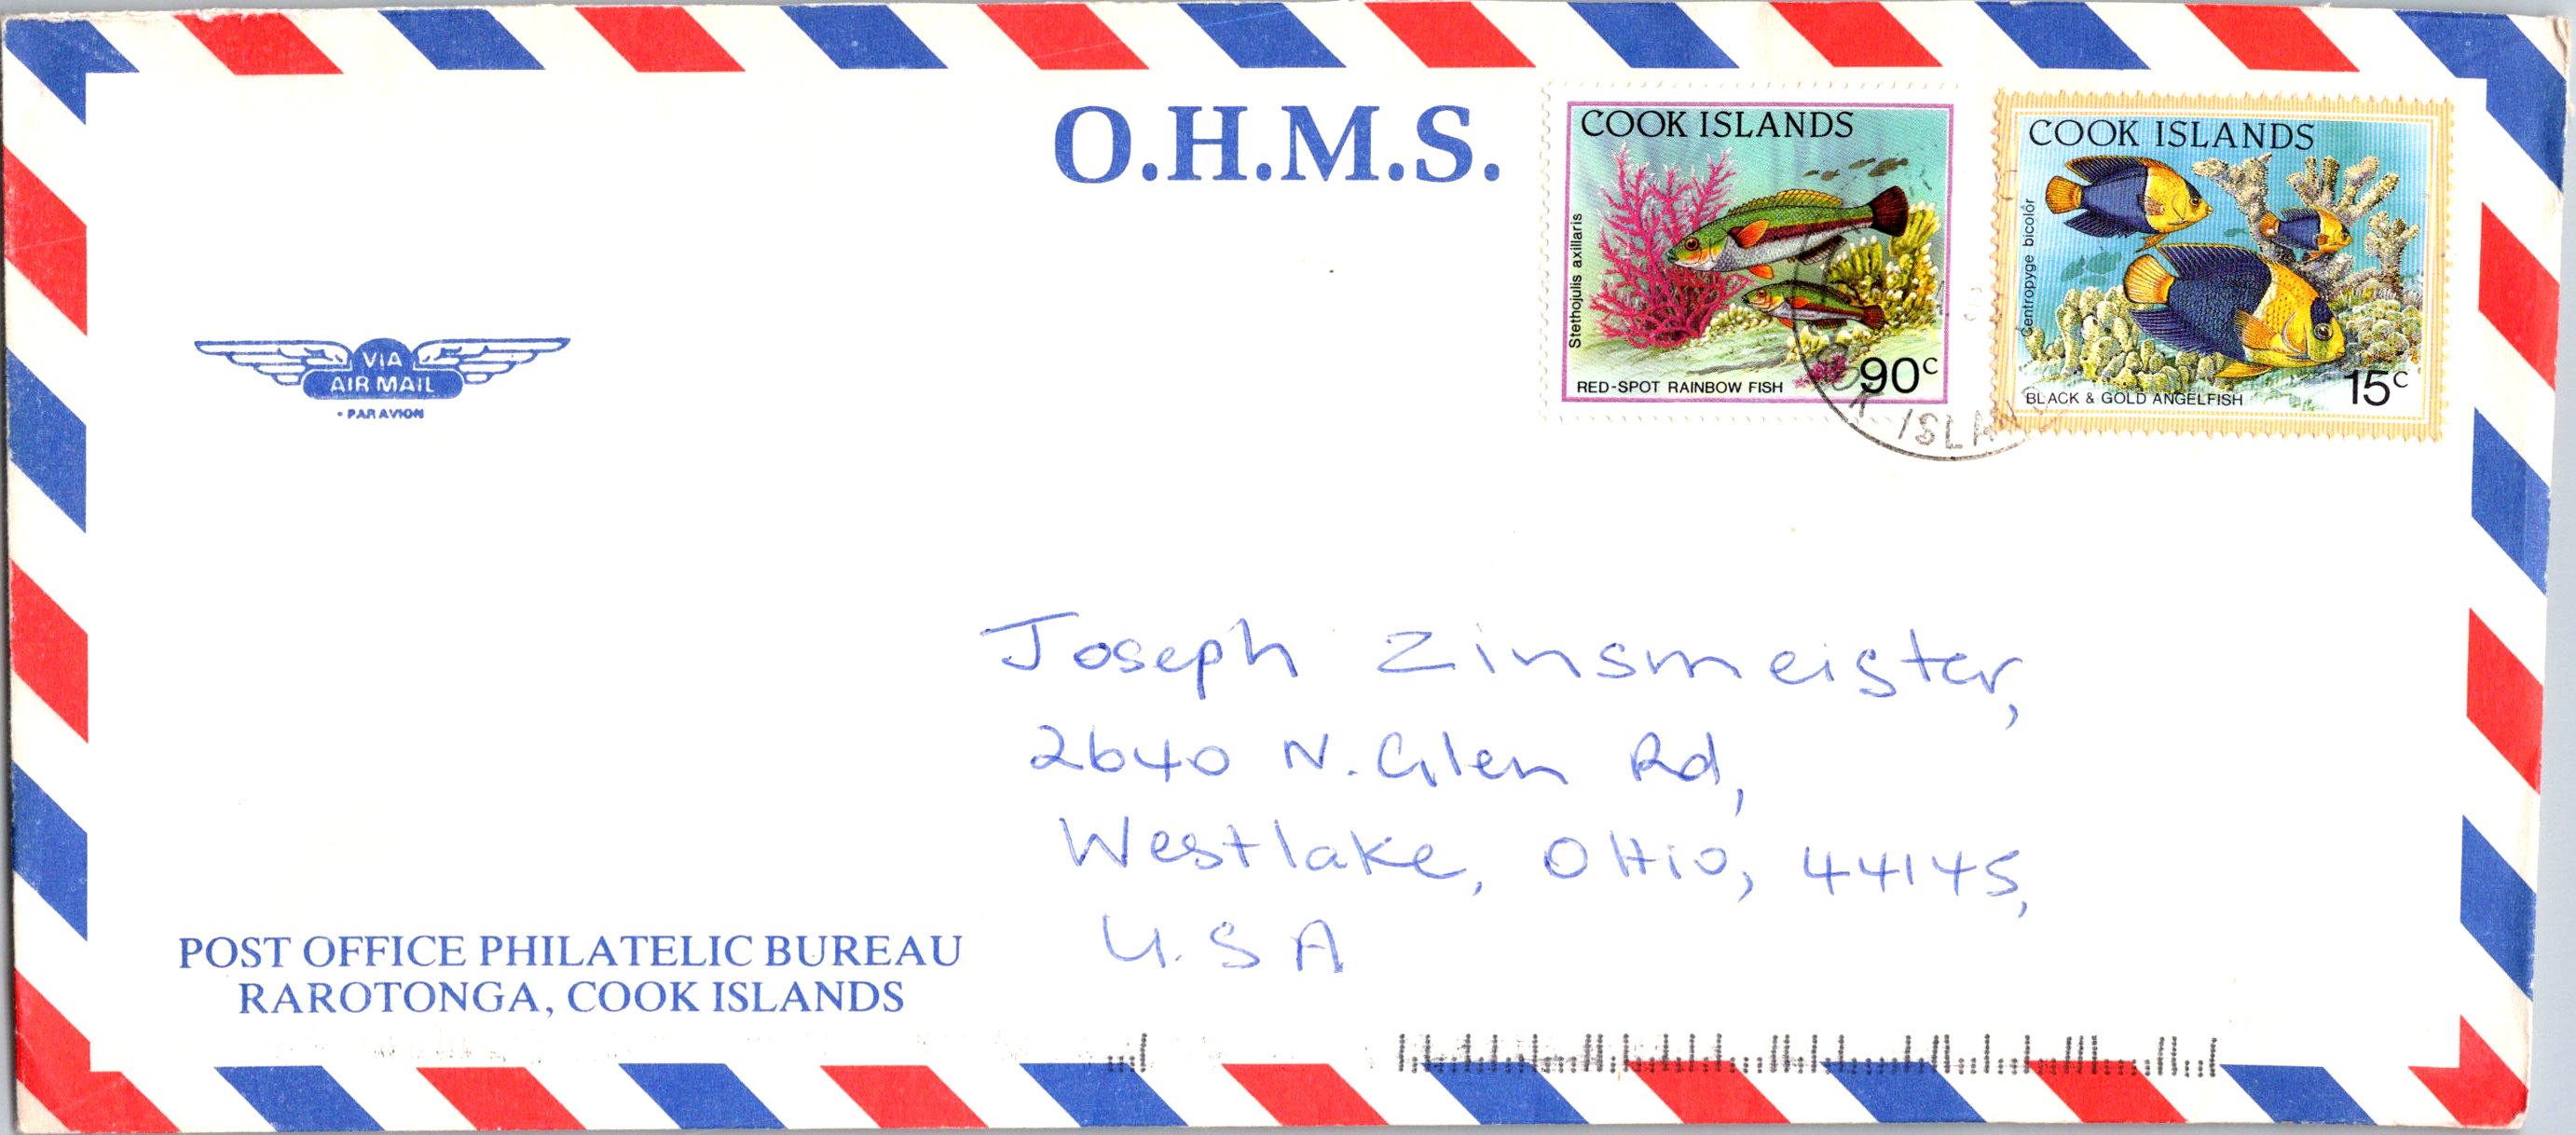 O.H.M.S.
COOK ISLANDS
Stethojulis axillaris
RED-SPOT RAINBOW FISH
90c
COOK ISLANDS
Centropyge bicolor
BLACK & GOLD ANGELFISH
15c
ISLAN
VIA
AIR MAIL
• PAR AVION
Joseph Zinsmeister,
2640 N. Glen Rd,
Westlake, OHio, 44145,
U.S A
POST OFFICE PHILATELIC BUREAU
RAROTONGA, COOK ISLANDS